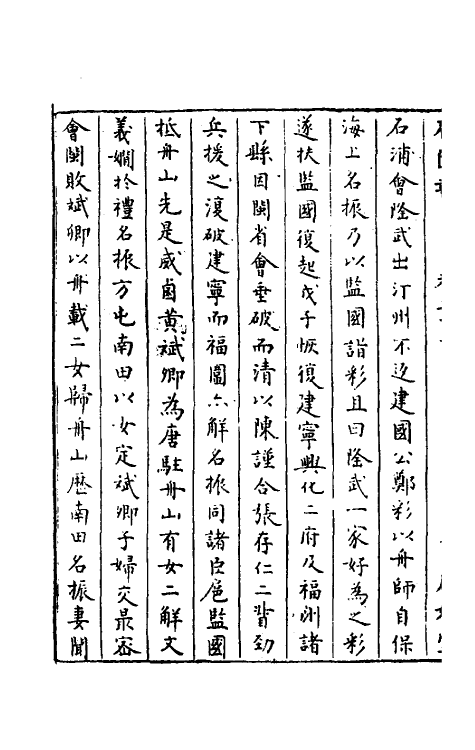 石浦會隆武出汀州不返建國公鄭彩以舟師自保
海上名振乃以監國詣彩且曰隆武一家好為之彩
遂扶監國復起戊子恢復建寧興化二府及福洲諸
下縣因閩省會垂破而清以陳謹合張存仁二背劲
兵援之復破建寧而福圍亦解名振同諸臣扈監國
抵舟山先是威鹵黃斌卿為唐駐舟山有女二解文
義嫻於禮名振方屯南田以女定斌卿子婦交最密
會閩敗斌卿以舟載二女歸舟山歷南田名振妻聞